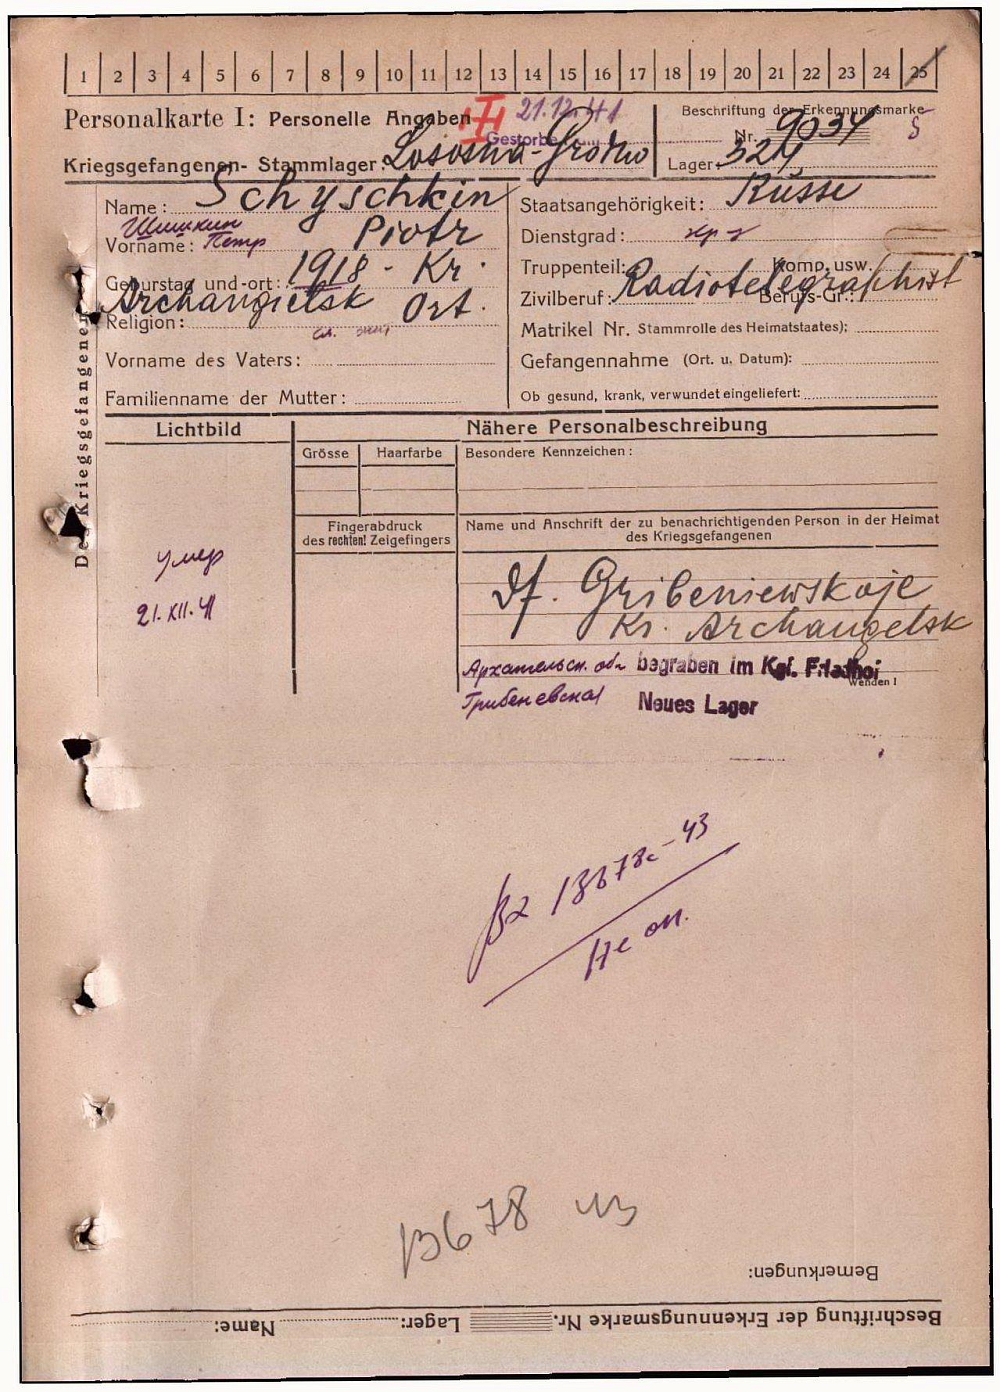 1 2 3 4 5 6 7 8 9 10 11 12 13 14 15 16 17 18 19 20 21 22 23 24 25
Personalkarte I: Personelle Angaben
21.12.41
Gestorben
Beschriftung der Erkennungsmarke
Nr. 9034
Kriegsgefangenen- Stammlager: Lososna-Grodno
Lager: 324
Des Kriegsgefangenen
Name: Schyschkin
Шишкин
Vorname: Piotr
Петр
Geburtstag und -ort: 1918 - Kr.
Archangielsk Ort.
Religion:
Vorname des Vaters:
Familienname der Mutter:
Staatsangehörigkeit: Russe
Dienstgrad:
Truppenteil: Komp. usw.
Zivilberuf: Radiotelegraphist Berufs-Gr.:
Matrikel Nr. Stammrolle des Heimatstaates):
Gefangennahme (Ort. u. Datum):
Ob gesund, krank, verwundet eingeliefert:
Lichtbild
Nähere Personalbeschreibung
Grösse Haarfarbe Besondere Kennzeichen:
Fingerabdruck
des rechten! Zeigefingers
Name und Anschrift der zu benachrichtigenden Person in der Heimat
des Kriegsgefangenen
умер
21.XII.41
Df. Gribeniewskoje
Kr. Archangelsk
Архангельск. обл
Грибеневская
begraben im Kgf. Friedhof
Neues Lager
Wenden!
13678с-43
Не оп.
13678
Bemerkungen:
Beschriftung der Erkennungsmarke Nr. Lager: Name: